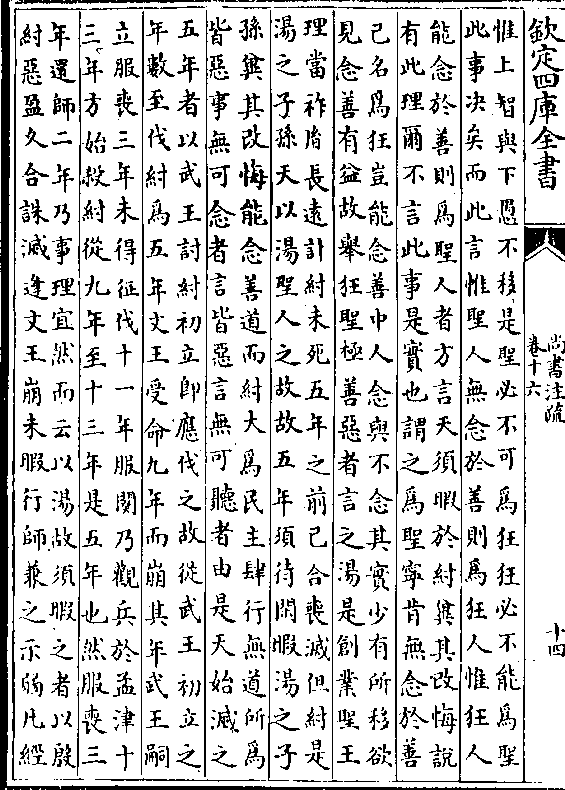 欽定四庫全書
尚書注疏
卷十六
十四
惟上智與下愚不移是聖必不可為狂狂必不能為聖
此事決矣而此言惟聖人無念於善則為狂人惟狂人
能念於善則為聖人者方言天須暇於紂冀其改悔說
有此理爾不言此事是實也謂之為聖寧肯無念於善
已名為狂豈能念善中人念與不念其實少有所移欲
見念善有益故舉狂聖極善惡者言之湯是創業聖王
理當祚胤長遠計紂未死五年之前已合喪滅但紂是
湯之子孫天以湯聖人之故故五年須待閒暇湯之子
孫冀其改悔能念善道而紂大為民主肆行無道所為
皆惡事無可念者言皆惡言無可聽者由是天始滅之
五年者以武王討紂初立即應伐之故從武王初立之
年數至伐紂為五年文王受命九年而崩其年武王嗣
立服喪三年未得征伐十一年服闋乃觀兵於孟津十
三年方始殺紂從九年至十三年是五年也然服喪三
年還師二年乃事理宜然而云以湯故須暇之者以殷
紂惡盈久合誅滅逢文王崩未暇行師兼之示弱凡經